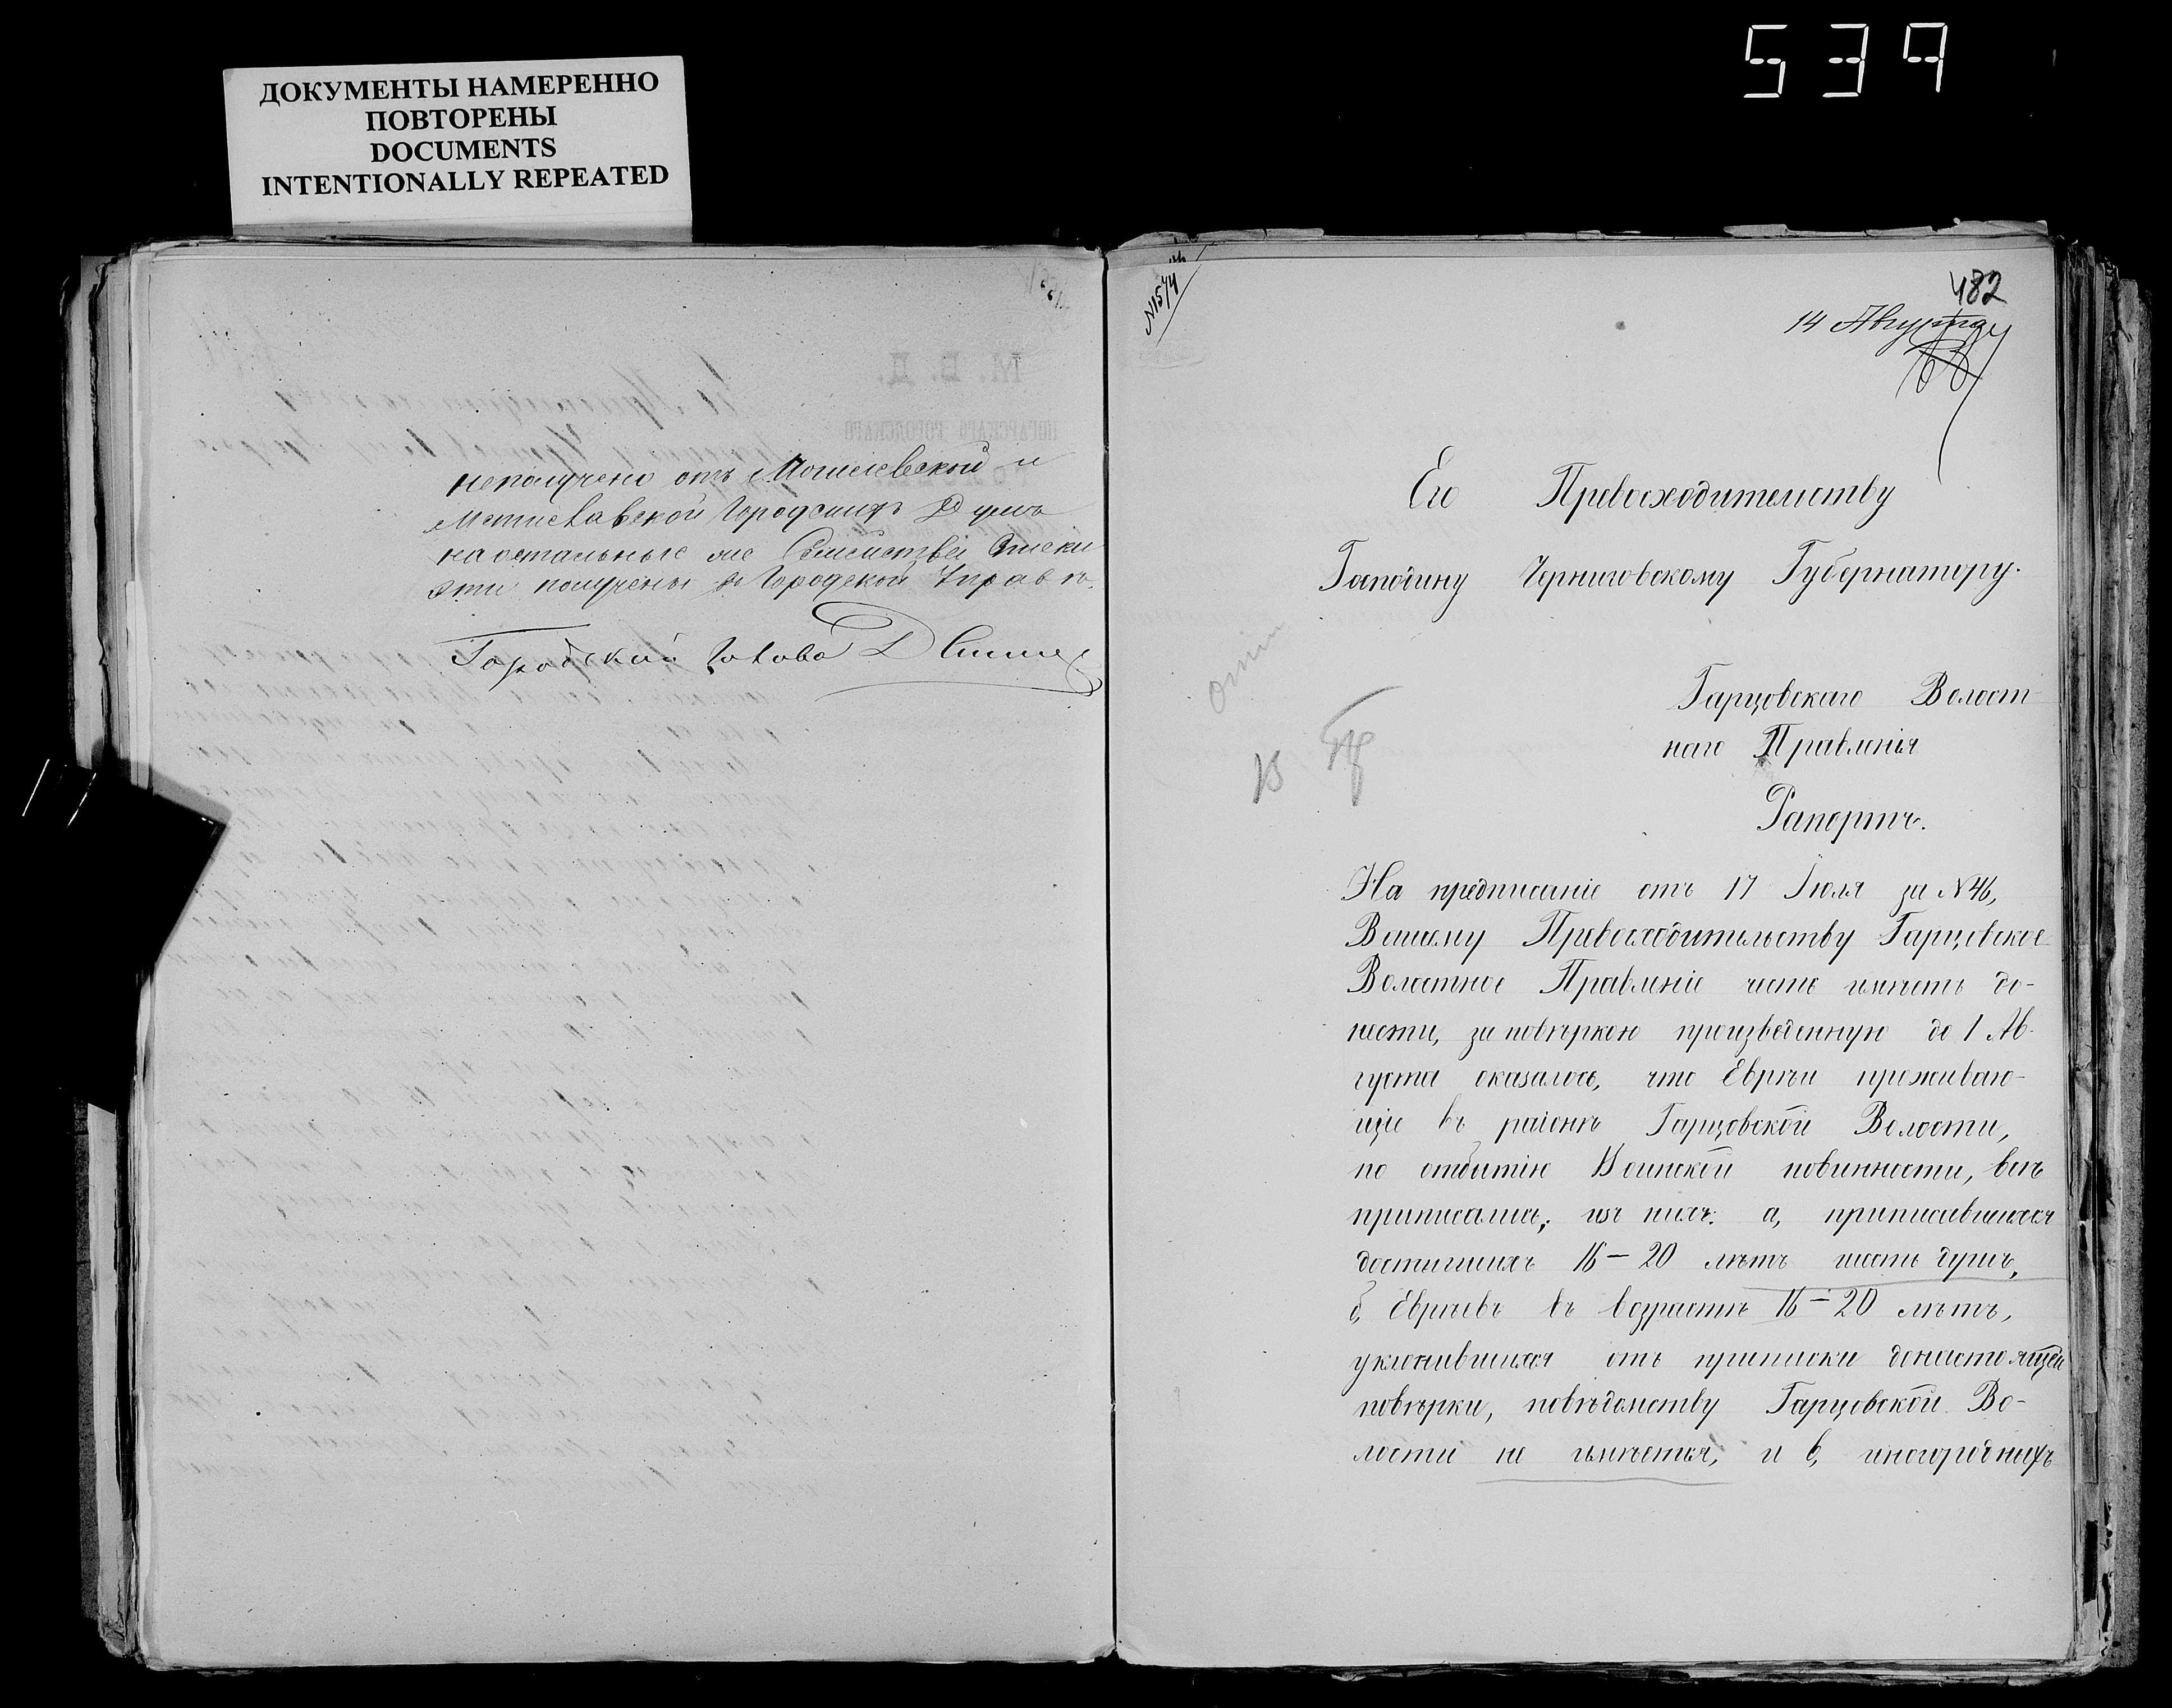 539
ДОКУМЕНТЫ НАМЕРЕННО
ПОВТОРЕНЫ
DOCUMENTS
INTENTIONALLY REPEATED
неполучено отъ Могилевской и
Мстиславской Городскихъ Думъ
на остальные же Семейства Списки
эти получены въ Городской Управѣ.
Городской Голова
482
14 Августа
Его Превосходительству
Господину Черниговскому Губернатору.
Гарцовскаго Волост-
наго Правленія
Рапортъ.
На предписаніе отъ 17 Іюля за № 46,
Вашему Превосходительству Гарцовское
Волостное Правленіе честь имѣетъ до-
нести, за повѣркою произведенную до 1 Ав-
густа оказалось, что Евреи проживаю-
щіе въ раіонѣ Гарцовской Волости,
по отбытію Воинской повинности, всѣ
приписались; изъ нихъ: а, приписавшихся
достигшихъ 16 – 20 лѣтъ шесть душъ,
б, Евреевъ въ возрастѣ 16 – 20 лѣтъ,
уклонившихся отъ приписки донастоящей
повѣрки, повѣдомству Гарцовской Во-
лости не имѣется, и в, иногородныхъ